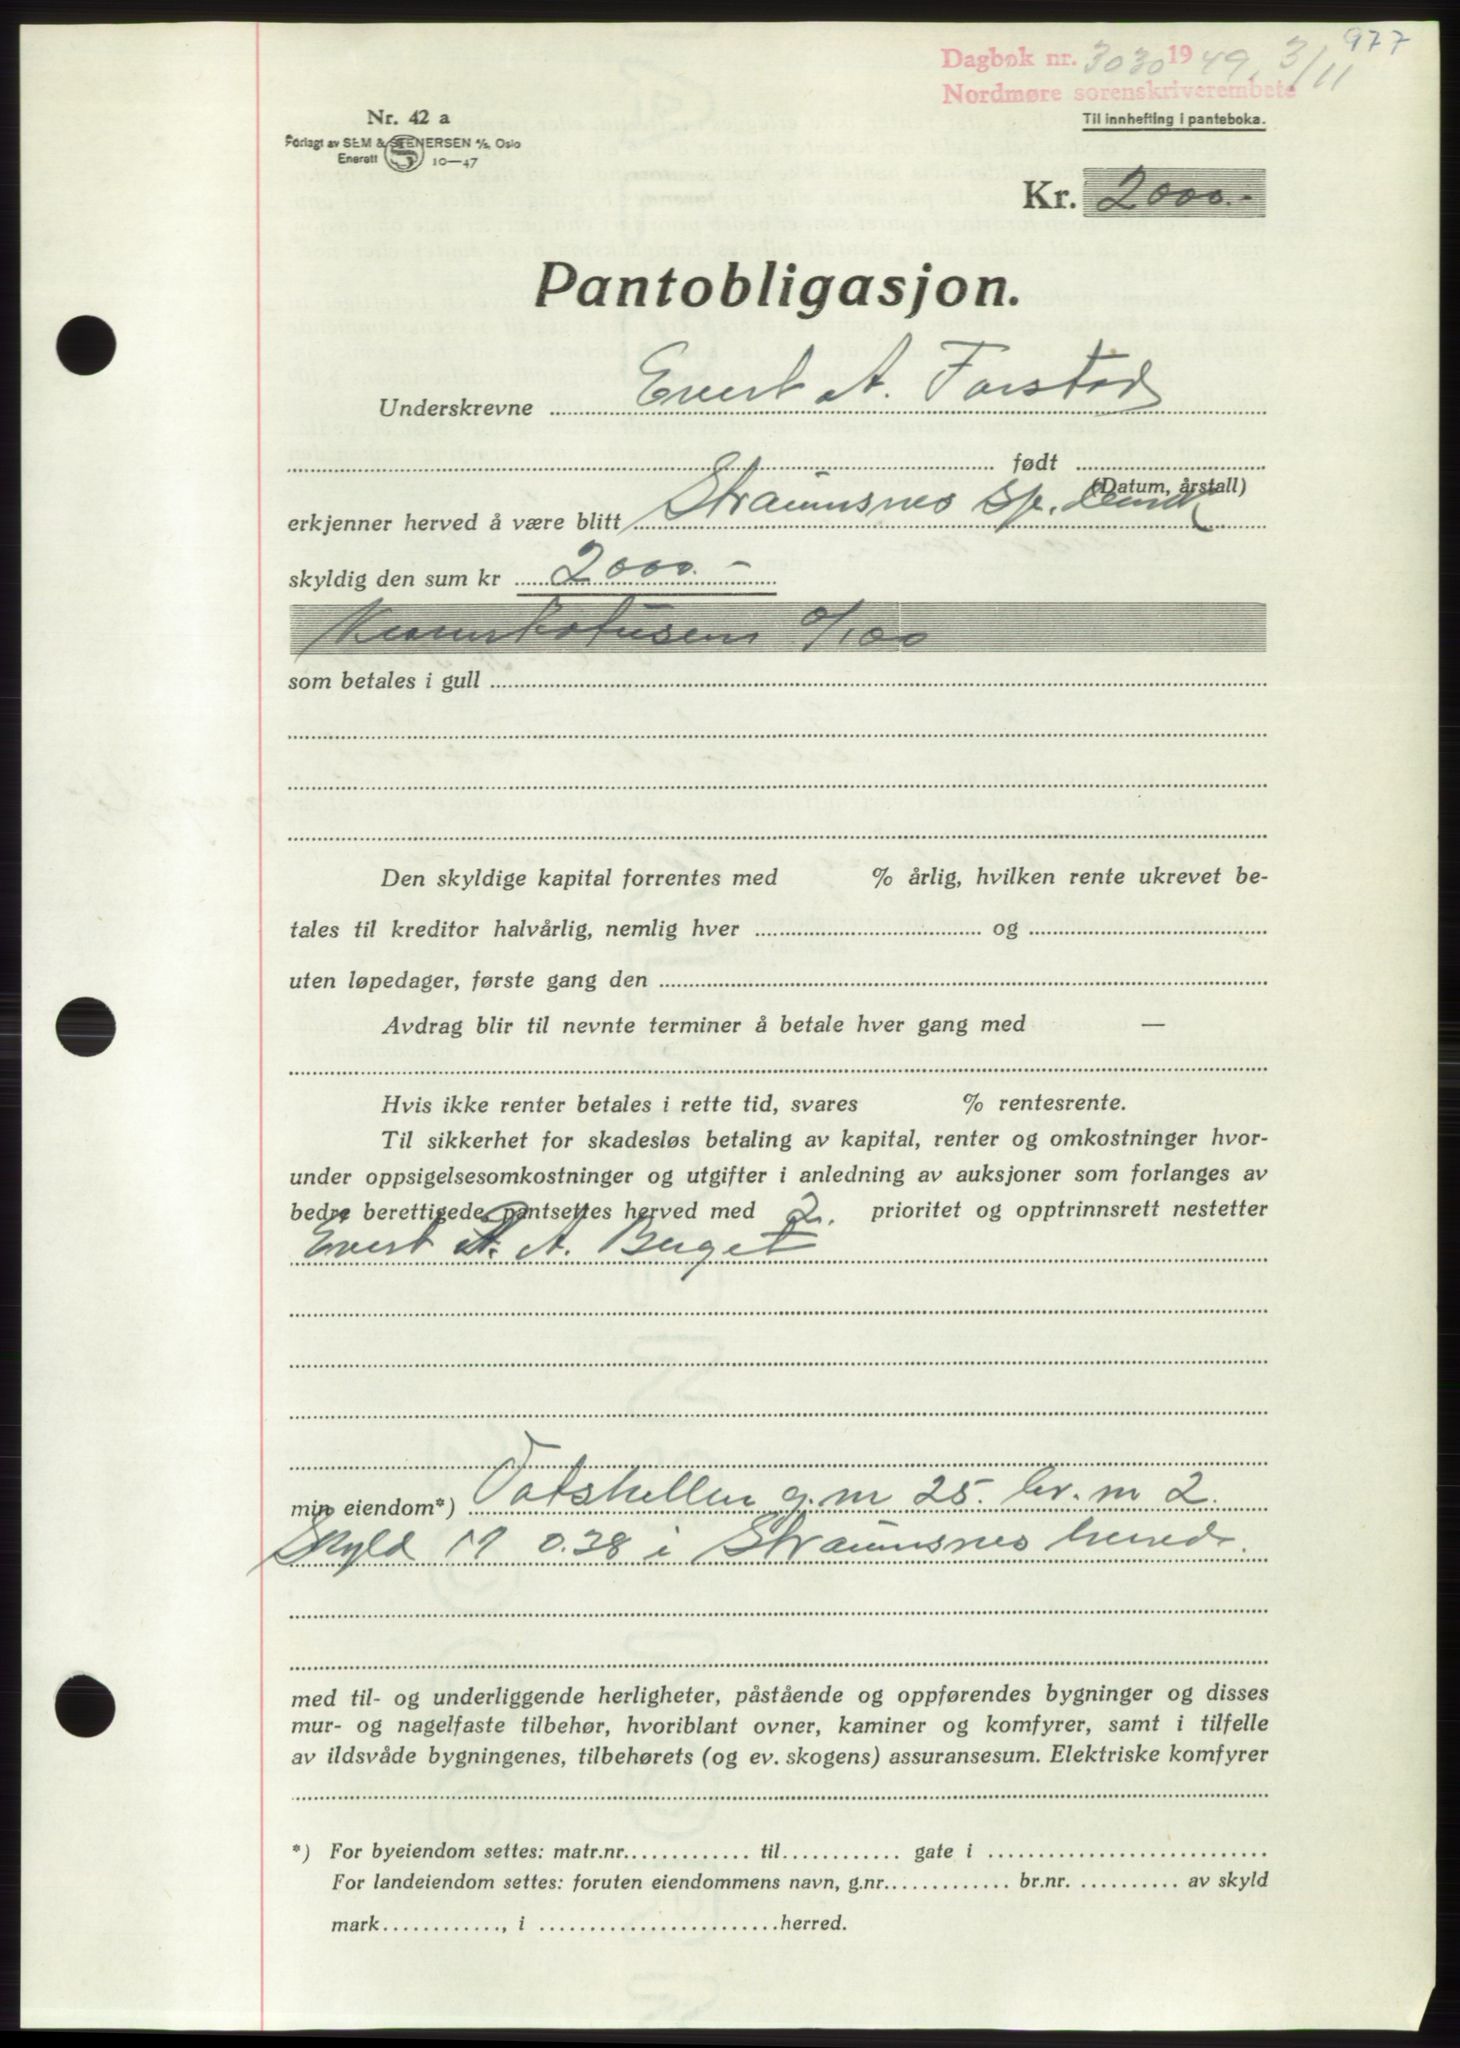 977
Dagbok nr. 3030 1949, 3/11
Nordmøre sorenskriverembete
Til innhefting i panteboka.
Nr. 42 a
Forlagt av SEM & STENERSEN A/S, Oslo
Enerett 10—47
Kr. 2000.-
Pantobligasjon.
Underskrevne Evert A. Forstad
født
(Datum, årstall)
erkjenner herved å være blitt Straumsnes Sp.
skyldig den sum kr 2000.-
0/100
som betales i gull
Den skyldige kapital forrentes med % årlig, hvilken rente ukrevet be-
tales til kreditor halvårlig, nemlig hver og
uten løpedager, første gang den
Avdrag blir til nevnte terminer å betale hver gang med —
Hvis ikke renter betales i rette tid, svares % rentesrente.
Til sikkerhet for skadesløs betaling av kapital, renter og omkostninger hvor-
under oppsigelsesomkostninger og utgifter i anledning av auksjoner som forlanges av
bedre berettigede pantsettes herved med 2. prioritet og opptrinnsrett nestetter
Evert A. Berget
min eiendom*) Votshellen g.nr 25. br.nr 2.
Skyld M 0.38 i Straumsnes herred.
med til- og underliggende herligheter, påstående og oppførendes bygninger og disses
mur- og nagelfaste tilbehør, hvoriblant ovner, kaminer og komfyrer, samt i tilfelle
av ildsvåde bygningenes, tilbehørets (og ev. skogens) assuransesum. Elektriske komfyrer
*) For byeiendom settes: matr.nr. til gate i
For landeiendom settes: foruten eiendommens navn, g.nr. br.nr. av skyld
mark , i herred.